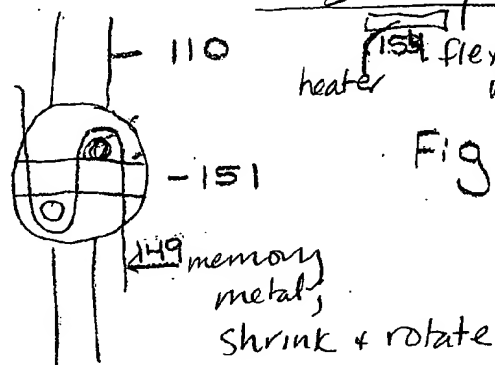 110
154 flex
heater
Fig
151
149 memory
metal,
shrink + rotate